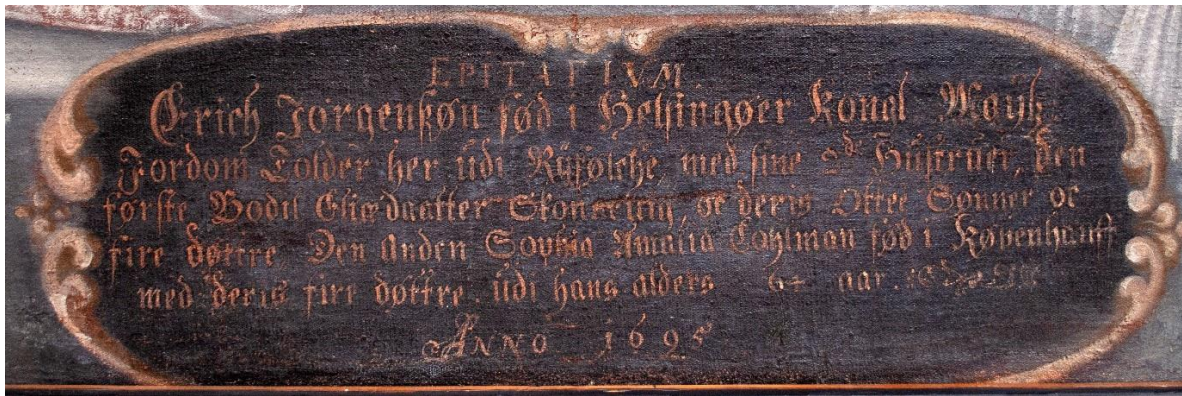 EPITAFIVM
Erich Jörgensøn fød i Helsingøer Kongl Mayts
Fordom Tolder her üdi Ryfölche, med sine 2de Hüstruer, den
første, Bodil Eliædaatter Skonevig, oc deris Ottee Sønner oc
fire døttre, Den anden Sophia Amalia Cohlman fød i Københaufn
med deris fire døttre. üdi hans alders 64 aar.
ANNO 1695